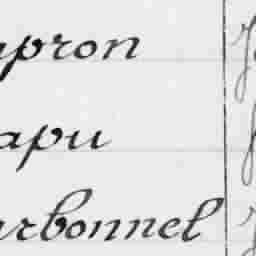 apron
apu
arbonnel